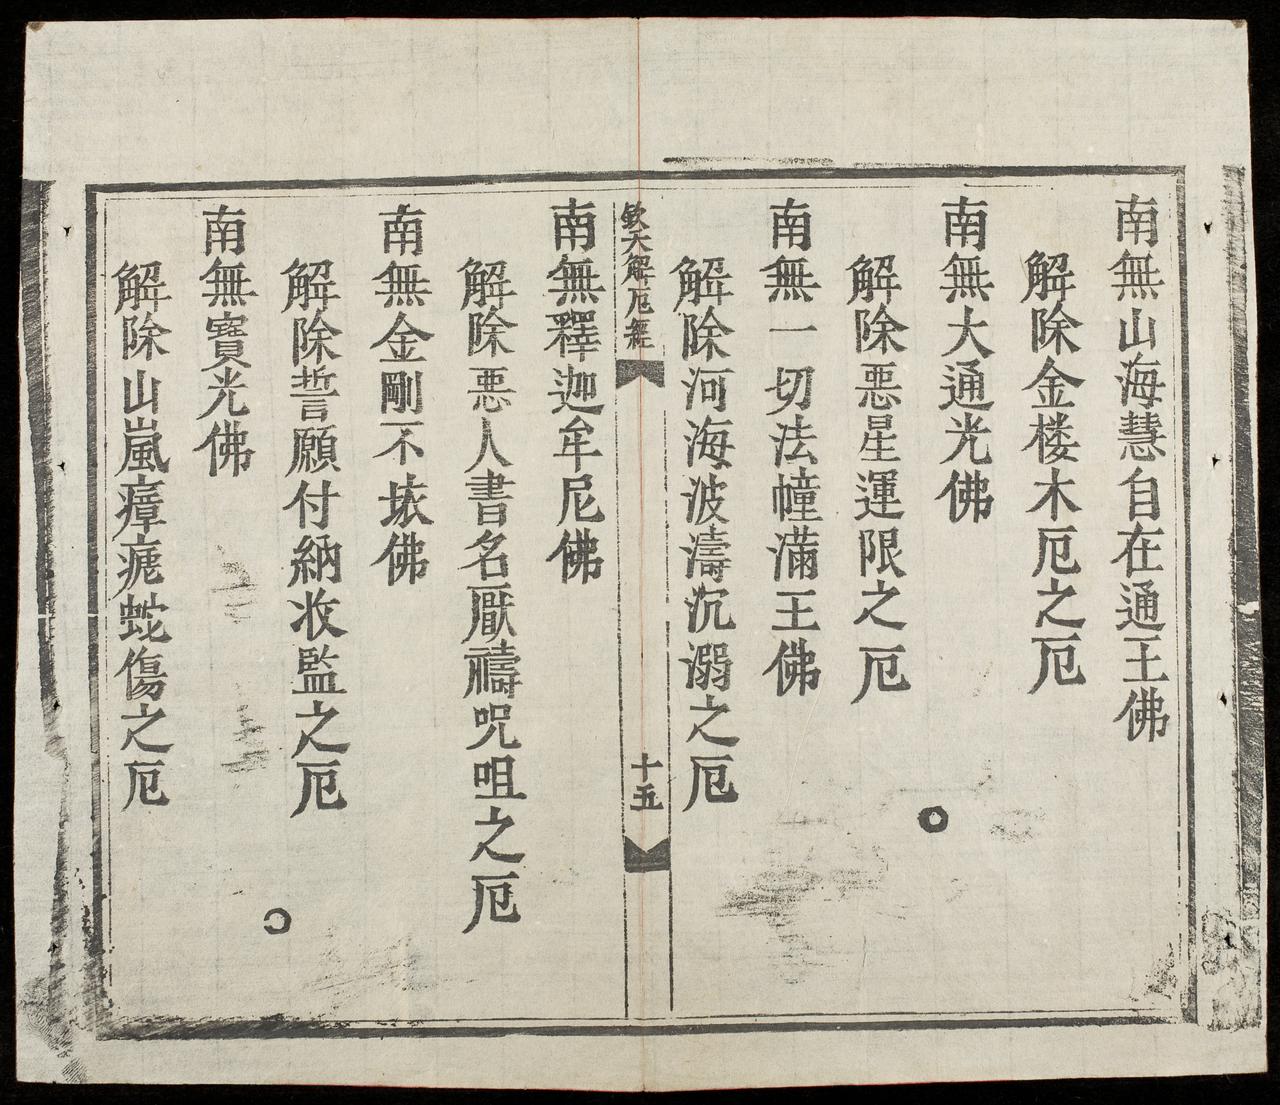 南無山海慧自在通王佛
解除金楼木厄之厄
南無大通光佛
解除惡星運限之厄
南無一切法幢滿王佛
解除河海波濤沉溺之厄
欽天解厄經
十五
南無釋迦牟尼佛
解除惡人書名厭禱呪咀之厄
南無金剛不坏佛
解除誓願付納收監之厄
南無寶光佛
解除山嵐瘴瘧蛇傷之厄